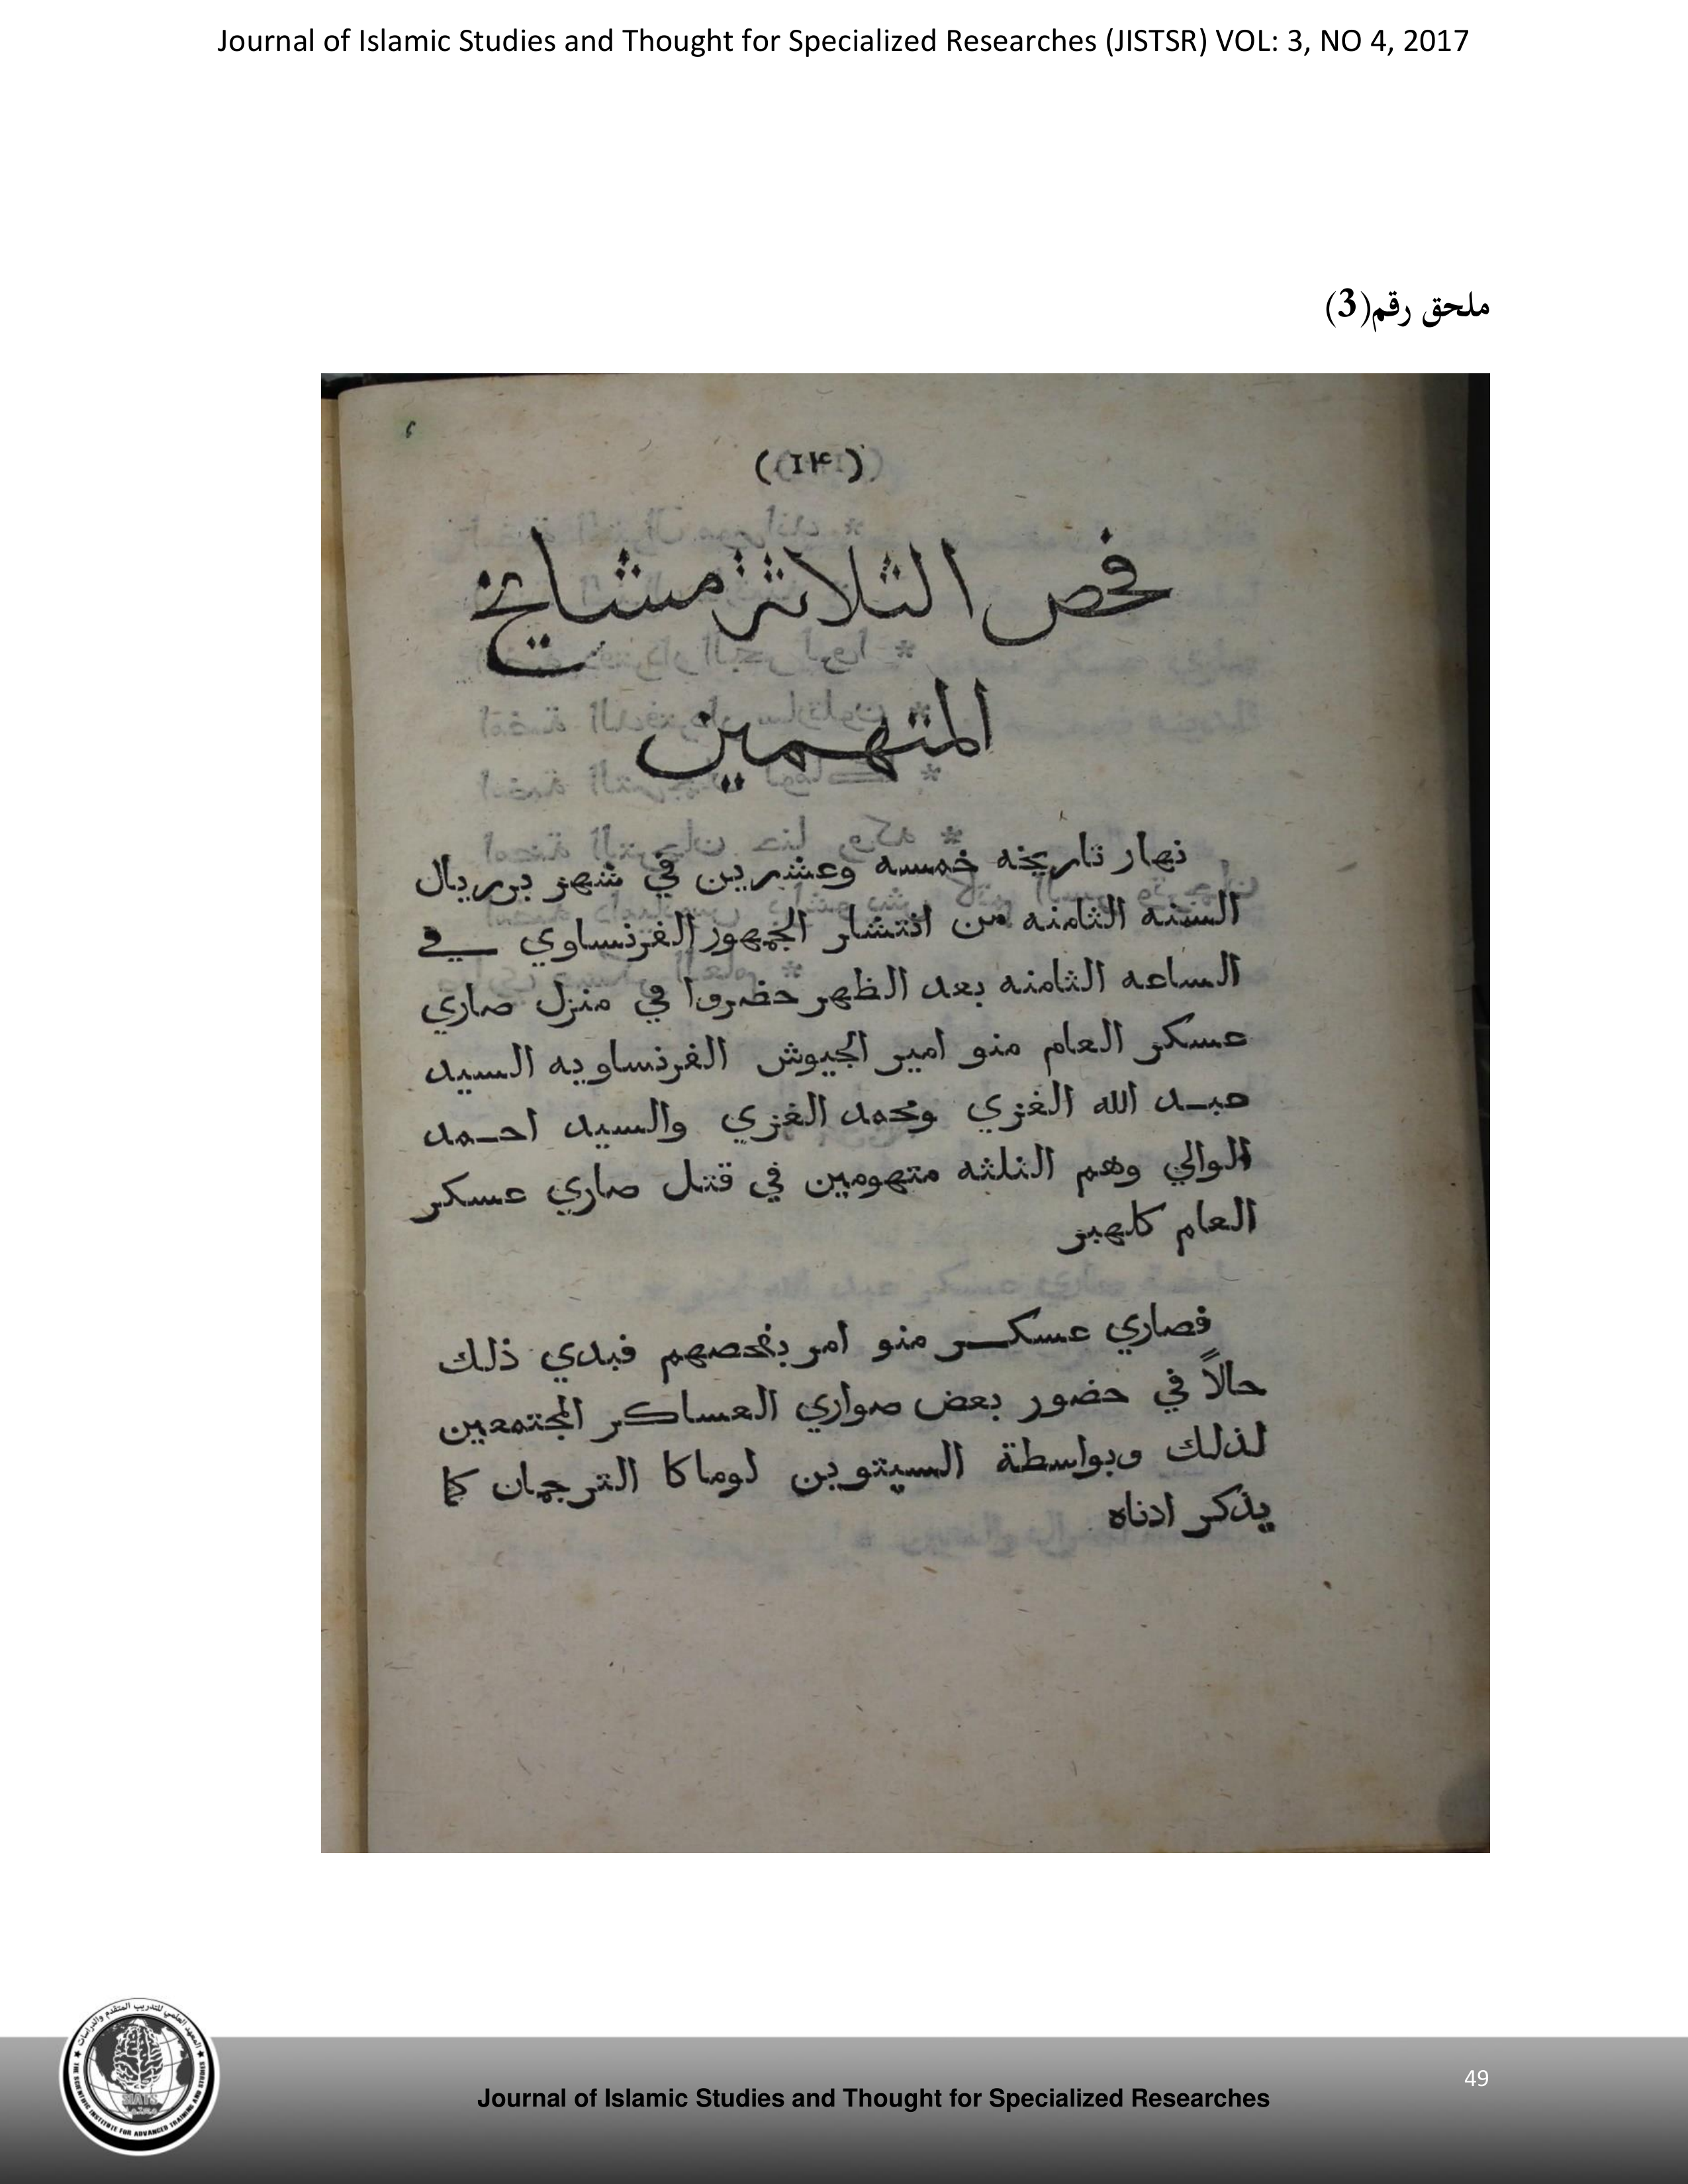 Journal of Islamic Studies and Thought for Specialized Researches (JISTSR) VOL: 3, NO 4, 2017
ملحق رقم(3)
فحص الثلاثة مشايخ
المتهمين
نهار تاريخه خمسه وعشرين في شهر بريريال
السنه الثامنه من انتشار الجمهور الفرنساوي في
الساعه الثامنه بعد الظهر حضروا في منزل صاري
عسكر العام منو امير الجيوش الفرنساويه السيد
عبد الله الغزي ومحمد الغزي والسيد احمد
الوالي وهم الثلثه متهومين في قتل صاري عسكر
العام كلهبر
فصاري عسكر منو امر بفحصهم فبدي ذلك
حالاً في حضور بعض صواري العساكر المجتمعين
لذلك وبواسطة السيتوين لوماكا الترجمان كما
يذكر ادناه
49
Journal of Islamic Studies and Thought for Specialized Researches
المعهد العلمي للتدريب المتقدم والدراسات
THE SCIENTIFIC INSTITUTE FOR ADVANCED TRAINING AND STUDIES
SIATS